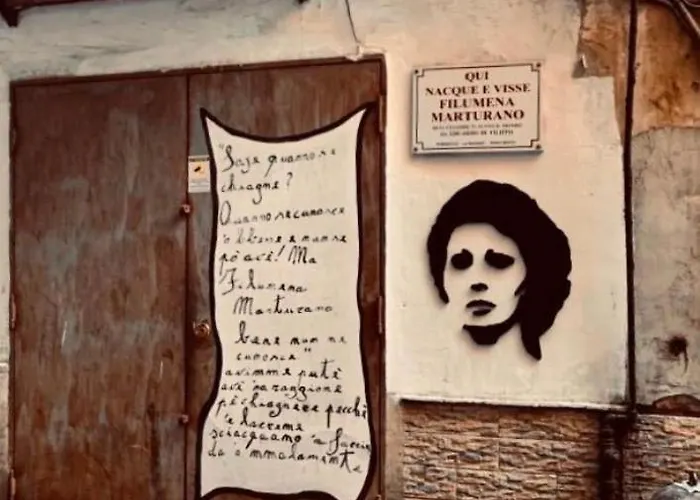 "Saje quanno se
chiagne?
Quanno se canosce
'o bbene e nun se
pò avé! Ma
Filumena
Marturano
bene nun ne
canosce"
avimme putè
avé 'na raggione
pe chiagnere pecchè
'e lacreme
sciacquano 'a faccia
da
QUI
NACQUE E VISSE
FILUMENA
MARTURANO
DA EDUARDO DE FILIPPO